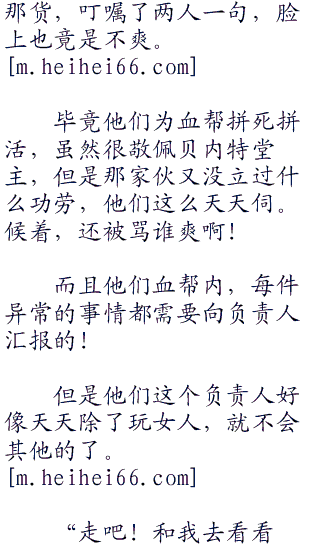 那货，叮嘱了两人一句，脸
上也竟是不爽。
[m.heihei66.com]
毕竟他们为血帮拼死拼
活，虽然很敬佩贝内特堂
主，但是那家伙又没立过什
么功劳，他们这么天天伺。
候着，还被骂谁爽啊！
而且他们血帮内，每件
异常的事情都需要向负责人
汇报的！
但是他们这个负责人好
像天天除了玩女人，就不会
其他的了。
[m.heihei66.com]
“走吧！和我去看看